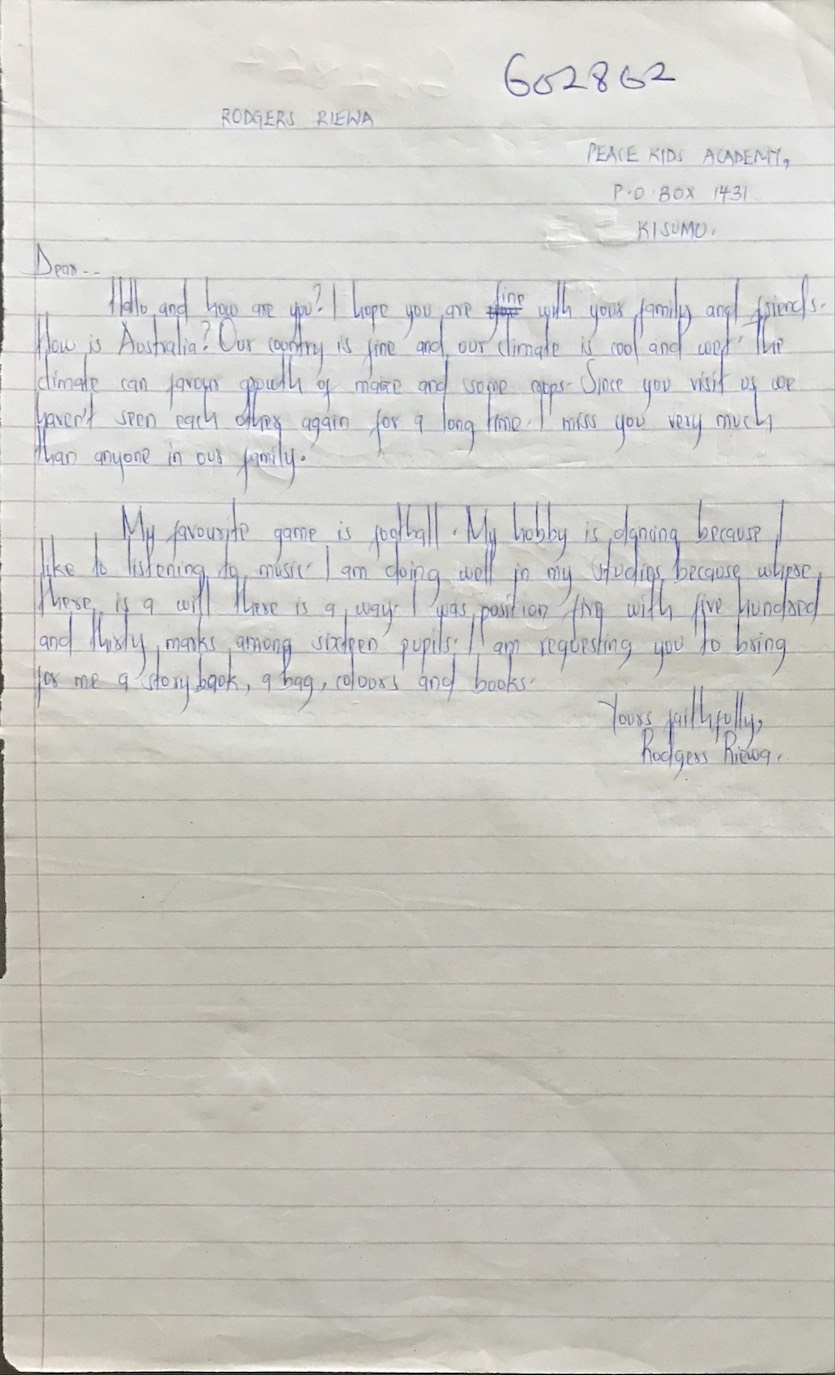 602862
RODGERS RIEWA
PEACE KIDS ACADEMY,
P.O BOX 1431
KISUMU.
Dear...
Hallo and how are you? I hope you are fine with your family and friends.
How is Australia? Our country is fine and our climate is cool and wet. The
climate can favour growth of maize and some crops. Since you visit us we
haven't seen each other again for a long time. I miss you very much
than anyone in our family.
My favourite game is football. My hobby is dancing because I
like to listening to music. I am doing well in my studies because where
there is a will there is a way. I was position five with five hundred
and thirty marks among sixteen pupils. I am requesting you to bring
for me a story book, a bag, colours and books.
Yours faithfully,
Rodgers Riewa.